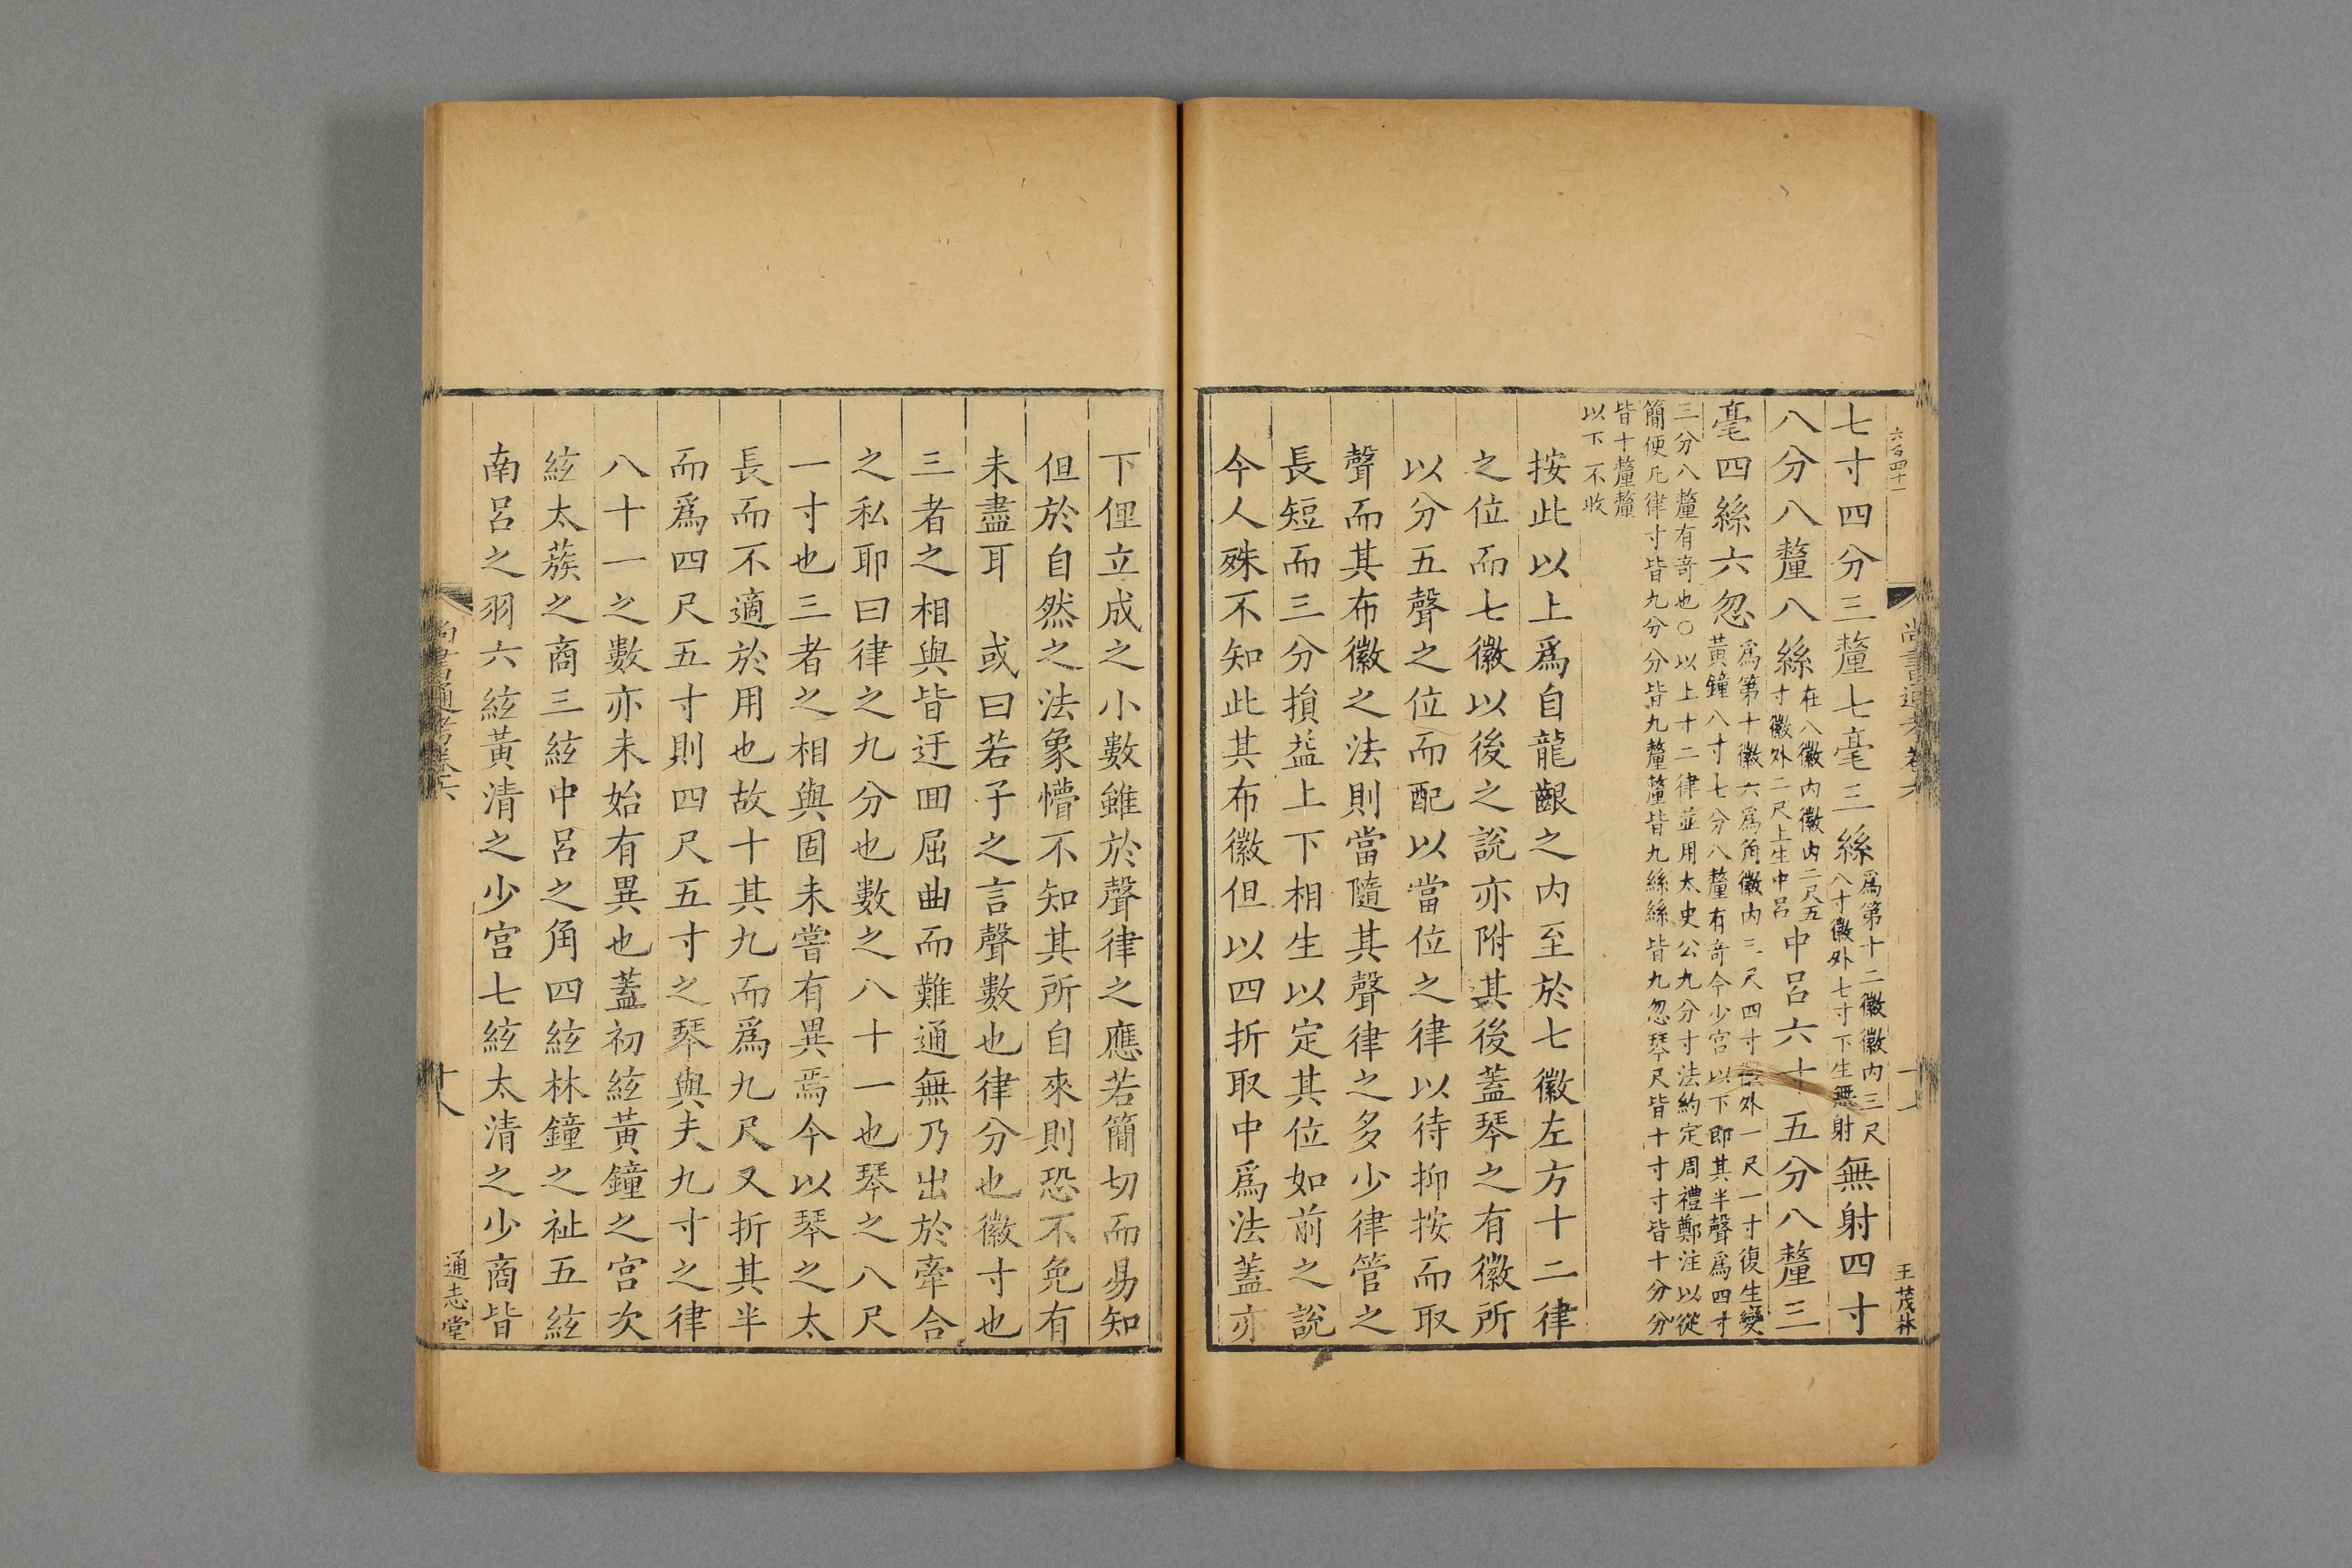 七寸四分三釐七毫三絲爲第十二徽徽内三尺八寸徽外七寸下生無射無射四寸
八分八釐八絲在八徽内徽内二尺五寸徽外二尺上生中呂中呂六十五分八釐三
毫四絲六忽爲第十徽六爲角徽内三尺四寸徽外一尺一寸復生變黃鐘八寸七分八釐有奇今少宮以下即其半聲爲四寸
三分八釐有奇也○以上十二律並用太史公九分寸法約定周禮鄭注以從
簡便凡律寸皆九分分皆九釐釐皆九絲絲皆九忽琴尺皆十寸寸皆十分分
皆十釐釐
以下不收
按此以上爲自龍齦之内至於七徽左方十二律
之位而七徽以後之說亦附其後蓋琴之有徽所
以分五聲之位而配以當位之律以待抑按而取
聲而其布徽之法則當隨其聲律之多少律管之
長短而三分損益上下相生以定其位如前之說
今人殊不知此其布徽但以四折取中爲法蓋亦
王茂林
下俚立成之小數雖於聲律之應若簡切而易知
但於自然之法象懵不知其所自來則恐不免有
未盡耳　或曰若子之言聲數也律分也徽寸也
三者之相與皆迂回屈曲而難通無乃出於牽合
之私耶曰律之九分也數之八十一也琴之八尺
一寸也三者之相與固未嘗有異焉今以琴之太
長而不適於用也故十其九而爲九尺又折其半
而爲四尺五寸則四尺五寸之琴與夫九寸之律
八十一之數亦未始有異也蓋初絃黃鐘之宮次
絃太蔟之商三絃中呂之角四絃林鐘之祉五絃
南呂之羽六絃黃清之少宮七絃太清之少商皆
尚書通考卷六
十八
通志堂